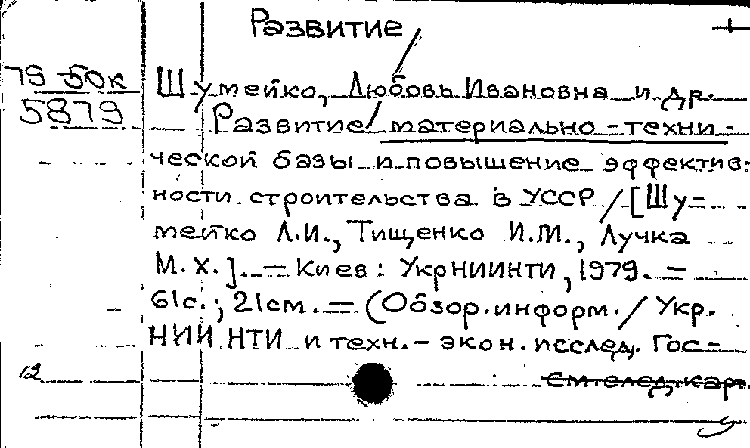 Развитие
79-50к
5879
Шумейко, Любовь Ивановна и др.
Развитие материально-техни-
ческой базы и повышение эффектив-
ности строительства в УССР / [Шу-
мейко Л.И., Тищенко И.М., Лучка
М.Х.]. — Киев: УкрНИИНТИ, 1979. —
61с.; 21см. — (Обзор. информ. / Укр.
НИИ НТИ и техн.-экон. исслед. Гос-
12